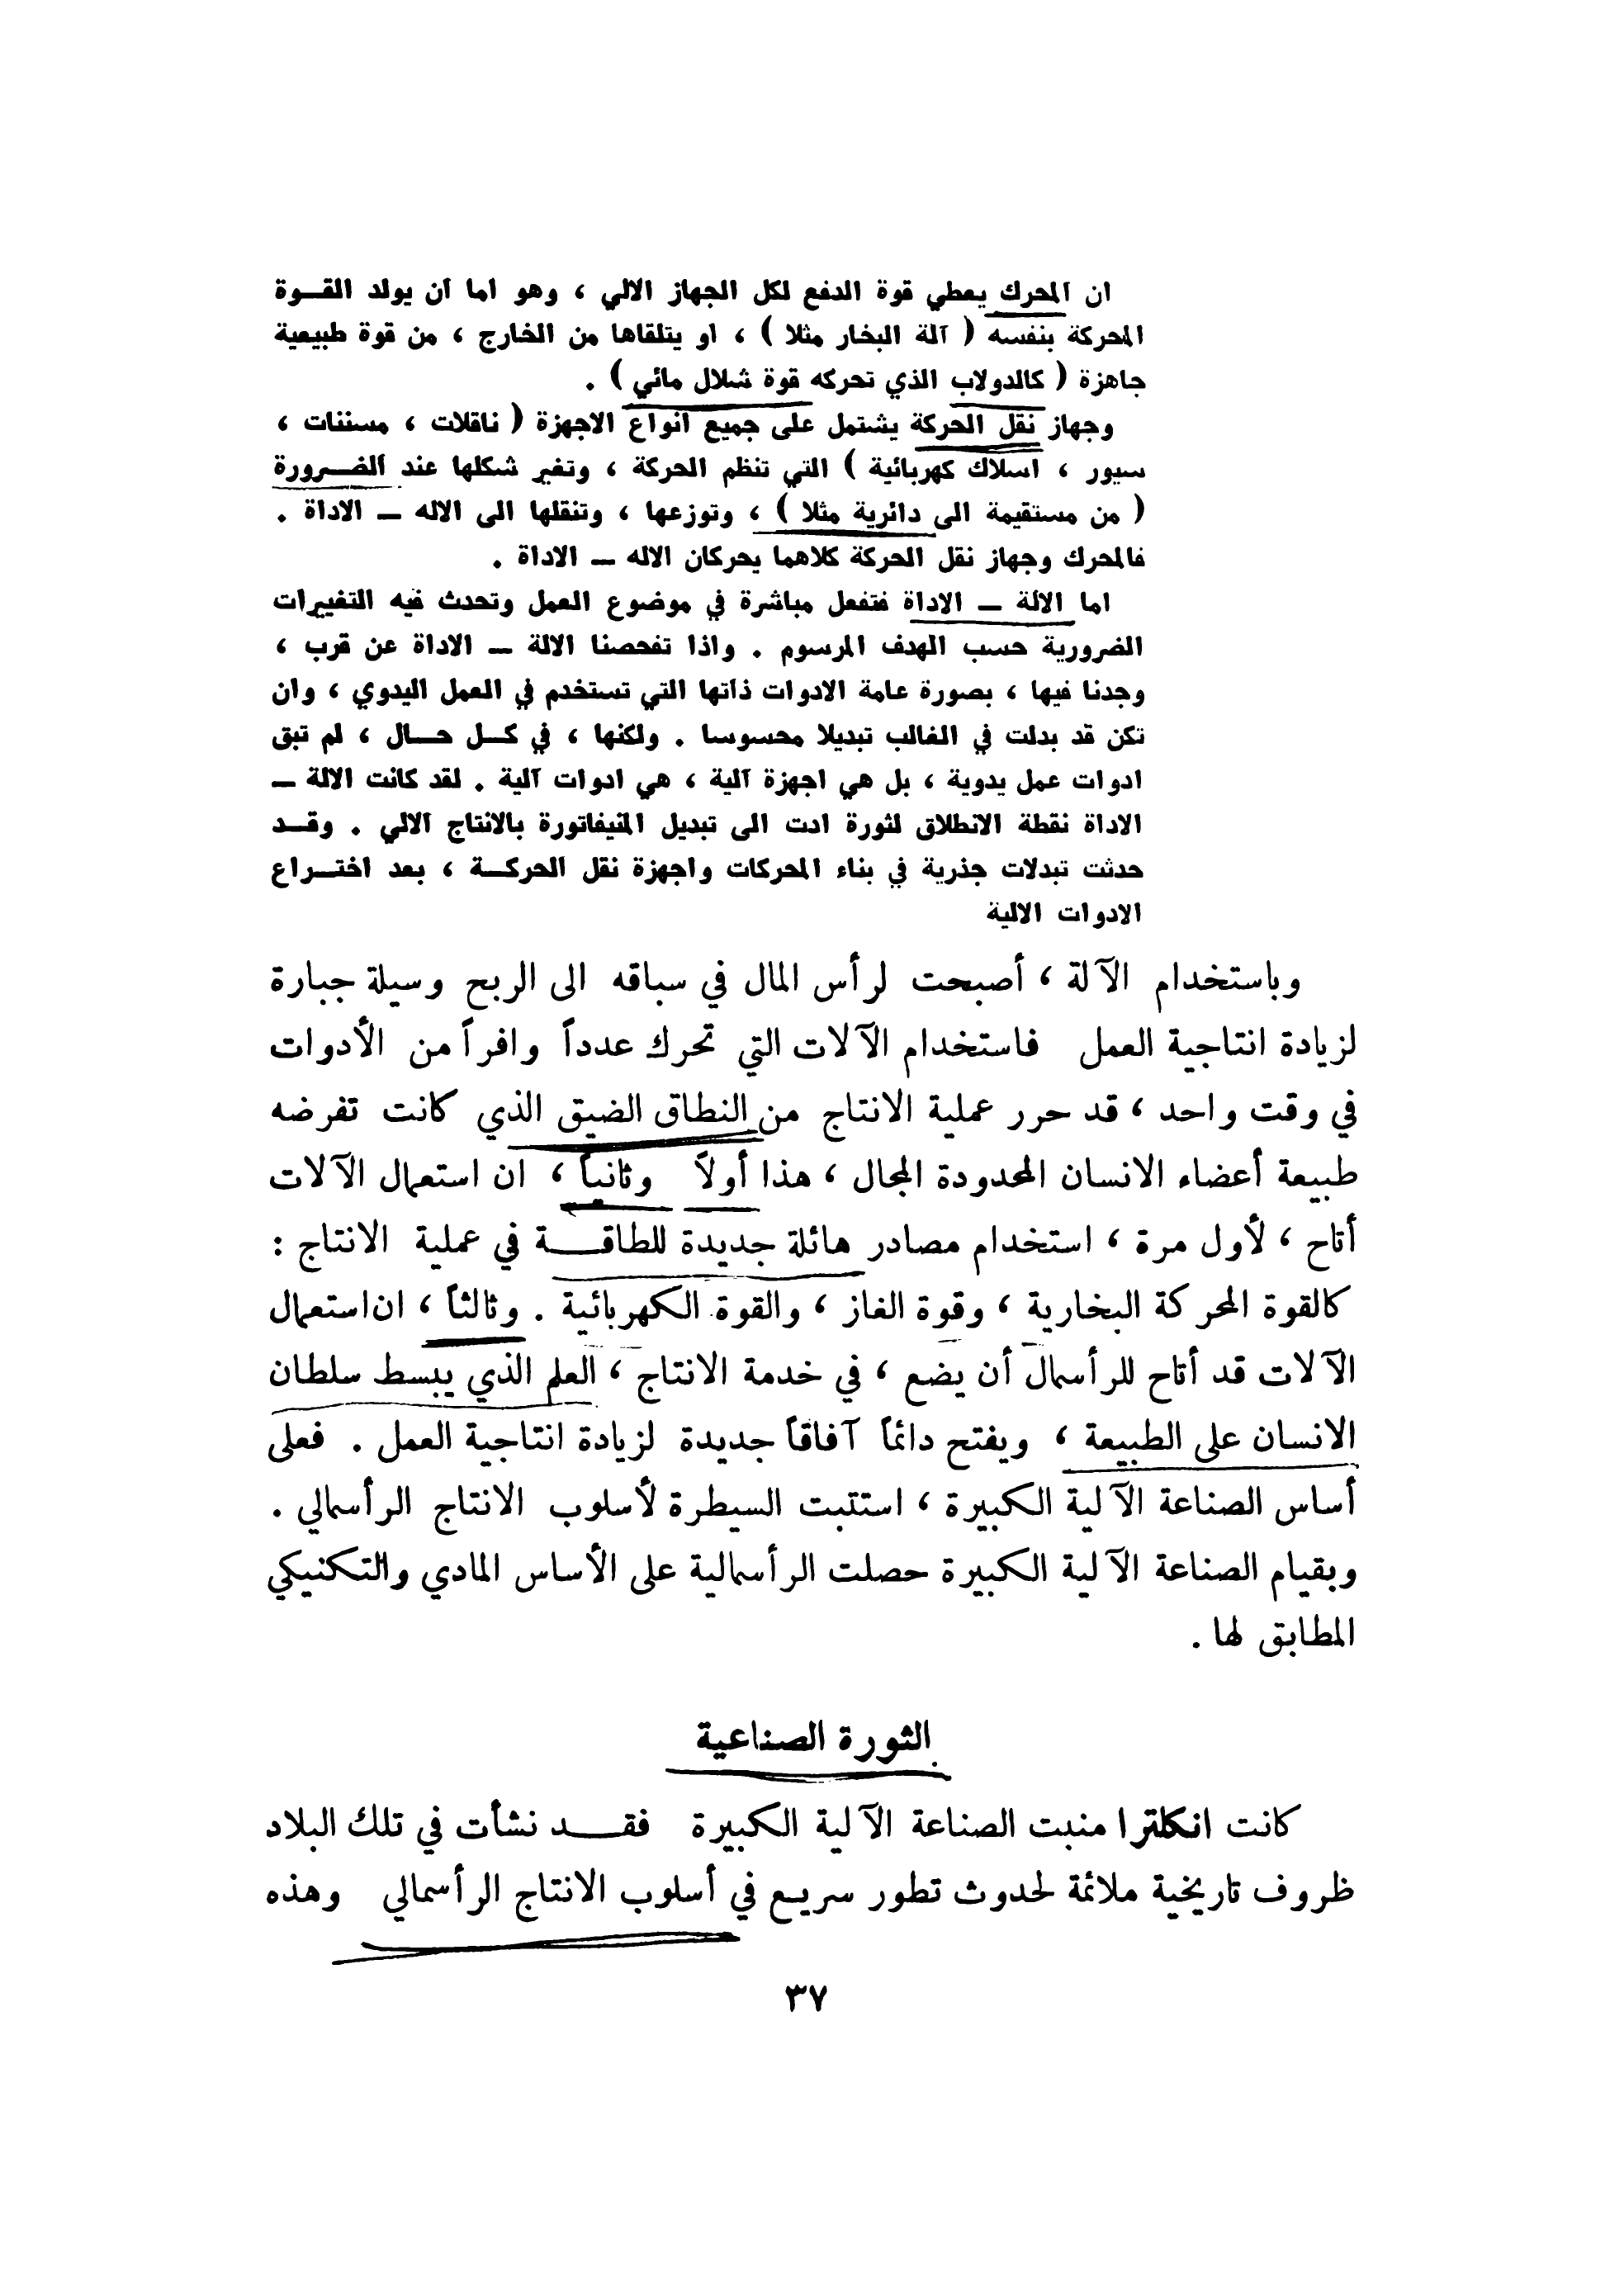 ان المحرك يعطي قوة الدفع لكل الجهاز الالي ، وهو اما أن يولد القـوة
المحركة بنفسه ( آلة البخار مثلا ) ، او يتلقاها من الخارج ، من قوة طبيعية
جاهزة ( كالدولاب الذي تحركه قوة شلال مائي ) .
وجهاز نقل الحركة يشتمل على جميع انواع الاجهزة ( ناقلات ، مسننات ،
سيور ، اسلاك كهربائية ) التي تنظم الحركة ، وتغير شكلها عند الضـرورة
( من مستقيمة الى دائرية مثلا ) ، وتوزعها ، وتنقلها الى الاله ـ الاداة .
فالمحرك وجهاز نقل الحركة كلاهما يحركان الاله ـ الاداة .
اما الالة ـ الاداة فتفعل مباشرة في موضوع العمل وتحدث فيه التغييرات
الضرورية حسب الهدف المرسوم . واذا تفحصنا الالة ـ الاداة عن قرب ،
وجدنا فيها ، بصورة عامة الادوات ذاتها التي تستخدم في العمل اليدوي ، وان
تكن قد بدلت في الغالب تبديلا محسوسا . ولكنها ، في كـل حـال ، لم تبق
ادوات عمل يدوية ، بل هي اجهزة آلية ، هي ادوات آلية . لقد كانت الالة ـ
الاداة نقطة الانطلاق لثورة ادت الى تبديل المنيفاتورة بالانتاج الالي . وقـد
حدثت تبدلات جذرية في بناء المحركات واجهزة نقل الحركـة ، بعد اختـراع
الادوات الالية
وباستخدام الآلة ، أصبحت لرأس المال في سباقه الى الربح وسيلة جبارة
لزيادة انتاجية العمل فاستخدام الآلات التي تحرك عدداً وافراً من الأدوات
في وقت واحد ، قد حرر عملية الانتاج من النطاق الضيق الذي كانت تفرضه
طبيعة أعضاء الانسان المحدودة المجال ، هذا أولاً وثانياً ، ان استعمال الآلات
أتاح ، لأول مرة ، استخدام مصادر هائلة جديدة للطاقـة في عملية الانتاج :
كالقوة المحركة البخارية ، وقوة الغاز ، والقوة الكهربائية . وثالثاً ، ان استعمال
الآلات قد أتاح للرأسمال أن يضع ، في خدمة الانتاج ، العلم الذي يبسط سلطان
الانسان على الطبيعة ، ويفتح دائماً آفاقاً جديدة لزيادة انتاجية العمل . فعلى
أساس الصناعة الآلية الكبيرة ، استتبت السيطرة لأسلوب الانتاج الرأسمالي .
وبقيام الصناعة الآلية الكبيرة حصلت الرأسمالية على الأساس المادي والتكنيكي
المطابق لها .
الثورة الصناعية
كانت انكلترا منبت الصناعة الآلية الكبيرة فقـد نشأت في تلك البلاد
ظروف تاريخية ملائمة لحدوث تطور سريع في أسلوب الانتاج الرأسمالي وهذه
٣٧